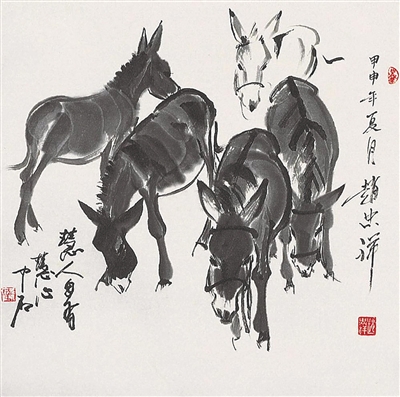 甲申年夏月
趙忠祥
慧人自有
慧心
中石